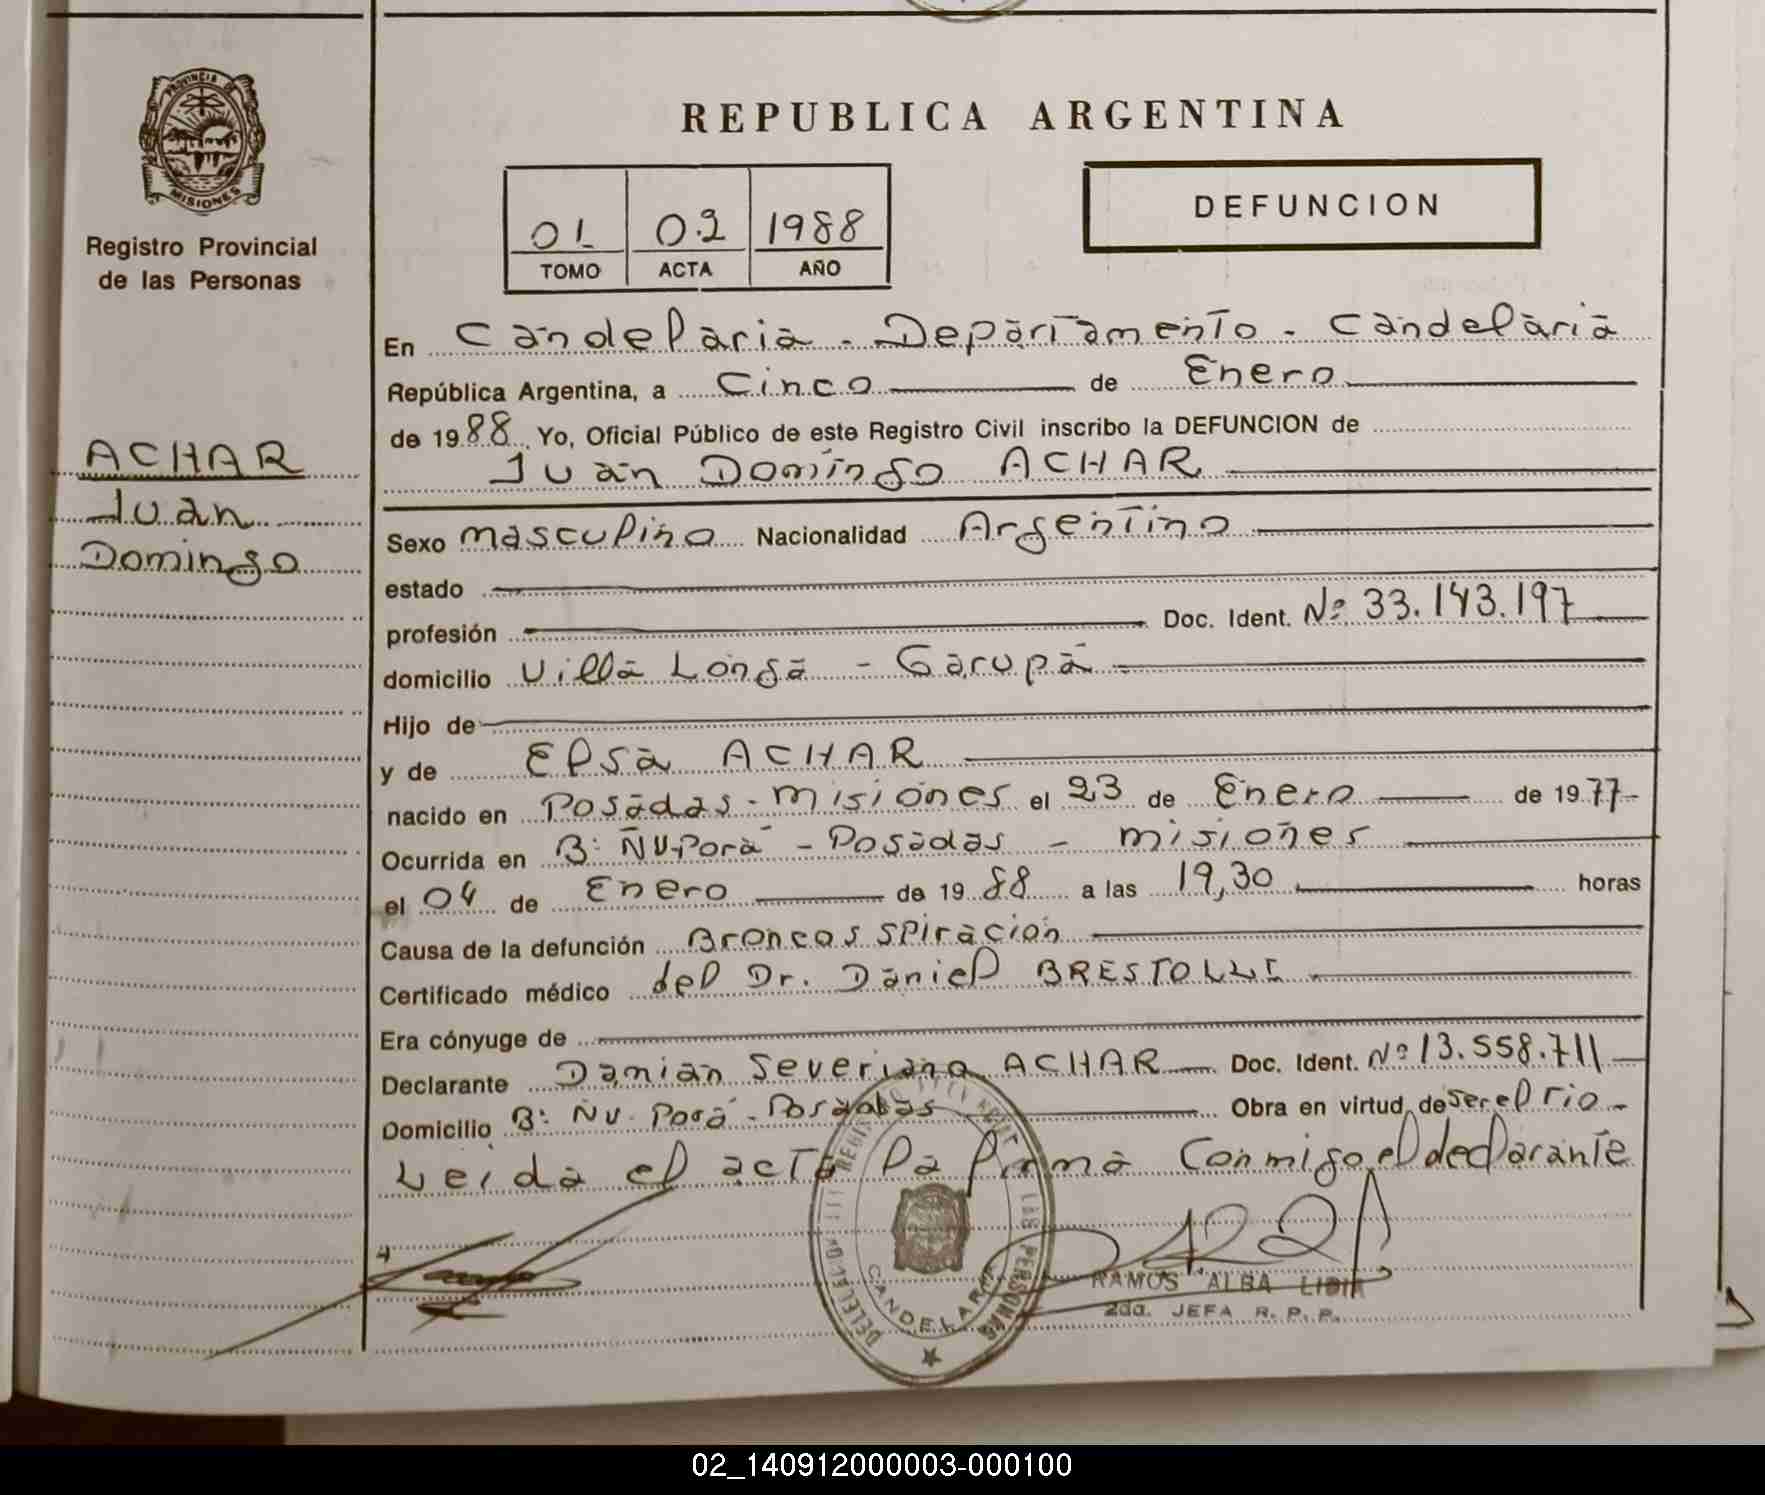 PROVINCIA DE
MISIONES
Registro Provincial
de las Personas
ACHAR
Juan
Domingo
REPUBLICA ARGENTINA
01 02 1988
TOMO ACTA AÑO
DEFUNCION
En Candelaria - Departamento - Candelaria
República Argentina, a Cinco de Enero
de 1988 Yo, Oficial Público de este Registro Civil inscribo la DEFUNCION de
Juan Domingo ACHAR
Sexo masculino Nacionalidad Argentino
estado
profesión Doc. Ident. Nº 33.143.197
domicilio Villa Longa - Garupá
Hijo de
y de Elsa ACHAR
nacido en Posadas - misiones el 23 de Enero de 1977-
Ocurrida en B: Ñu-Porá - Posadas - misiones
el 04 de Enero de 1988 a las 19,30 horas
Causa de la defunción Broncos spiración
Certificado médico del Dr. Daniel BRESTOLLI
Era cónyuge de
Declarante Damián Severiano ACHAR Doc. Ident. Nº 13.558.711
Domicilio B: Ñu-Porá - Posadas Obra en virtud de ser el Tío -
Leida el acta la firma Conmigo el declarante
CANDELARIA
RAMOS ALBA LIDIA
2da. JEFA R. P. P.
02_140912000003-000100